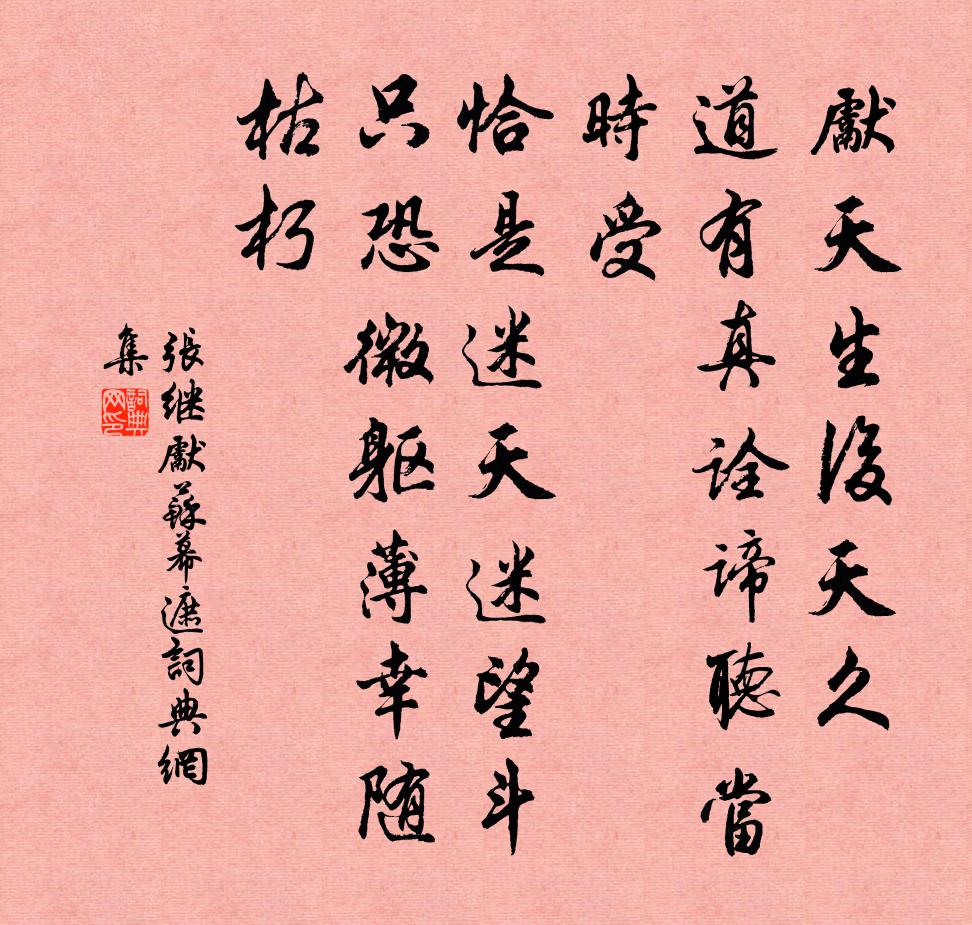 獻天生後天久
道有真詮諦聽當
時受
恰是迷天迷望斗
只恐微躯薄幸随
枯朽
張继獻蘇幕遮詞典網
集
詞典網印